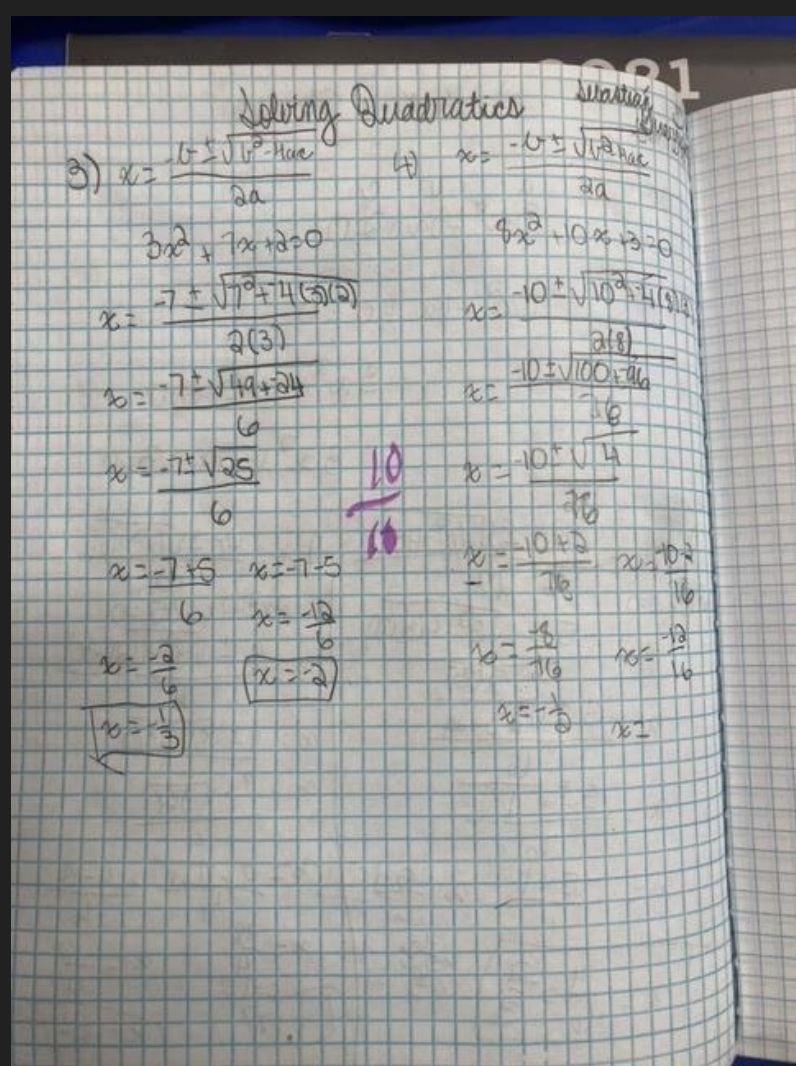 2021
Solving Quadratics
Sebastian
3) x = -b ± √b²-4ac / 2a
3x² + 7x + 2 = 0
x = -7 ± √7² + -4(3)(2) / 2(3)
x = -7 ± √49 + -24 / 6
x = -7 ± √25 / 6
x = -7+5 / 6    x = -7-5
x = -12/6
x = -2/6    x = -2
x = -1/3
10/10
4) x = -b ± √b² 4ac / 2a
8x² + 10x + 3 = 0
x = -10 ± √10² + -4(8)(3) / 2(8)
x = -10 ± √100 + -96 / 16
x = -10 ± √4 / 16
x = -10+2 / 16    x = -10-2 / 16
x = -8/16    x = -12/16
x = -1/2    x =